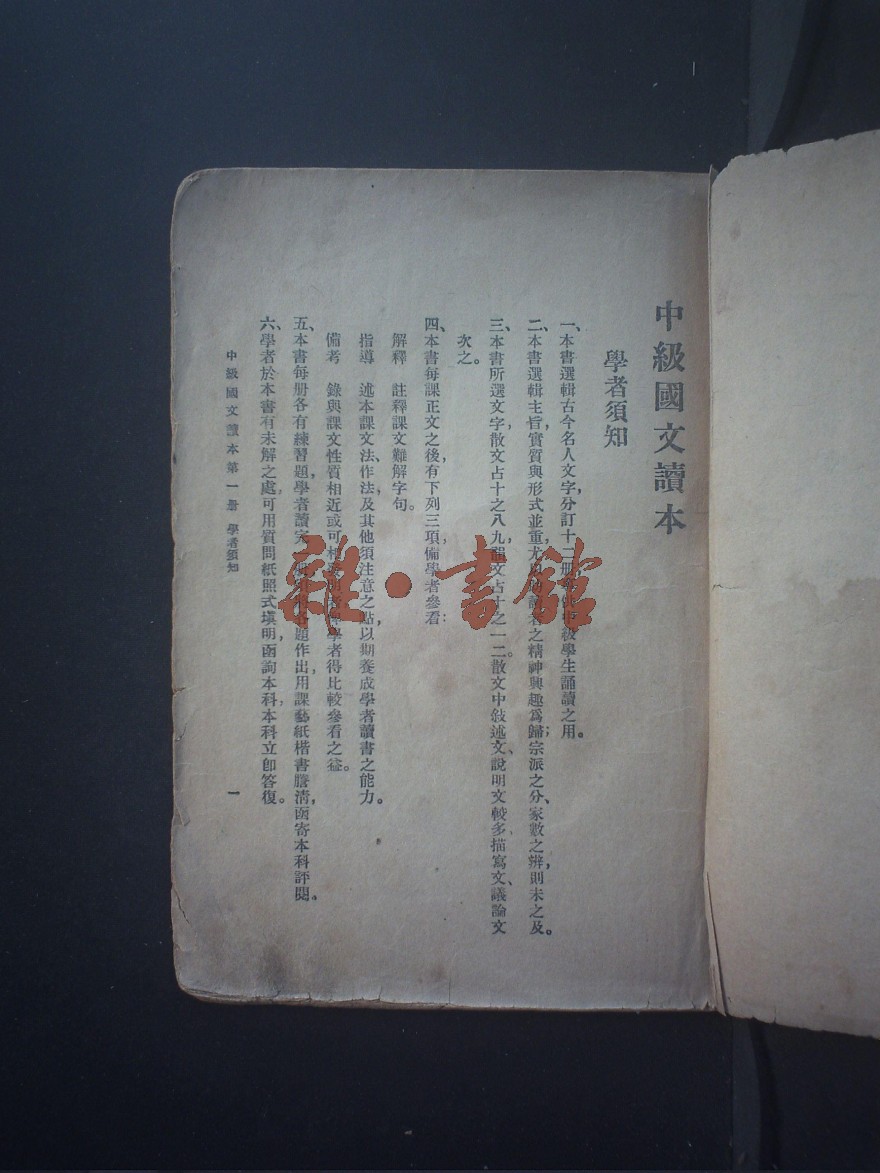 中級國文讀本
學者須知
一、本書選輯古今名人文字,分訂十二册,專供中級學生誦讀之用。
二、本書選輯主旨,實質與形式並重,尤以的讀者之精神興趣爲歸;宗派之分、家數之辨,則未之及。
三、本書所選文字,散文占十之八九,韻文占十之一二。散文中敍述文、說明文較多,描寫文、議論文
次之。
四、本書每課正文之後,有下列三項,備學者參看:
解釋 註釋課文難解字句。
指導 述本課文法、作法及其他須注意之點,以期養成學者讀書之能力。
備考 錄與課文性質相近或可相發明者,學者得比較參看之益。
五、本書每册各有練習題,學者讀完一册,題作出,用課藝紙楷書謄淸,函寄本科評閱。
六、學者於本書有未解之處,可用質問紙照式塡明,函詢本科,本科立卽答復。
中級國文讀本第一册 學者須知
一
雜·書館